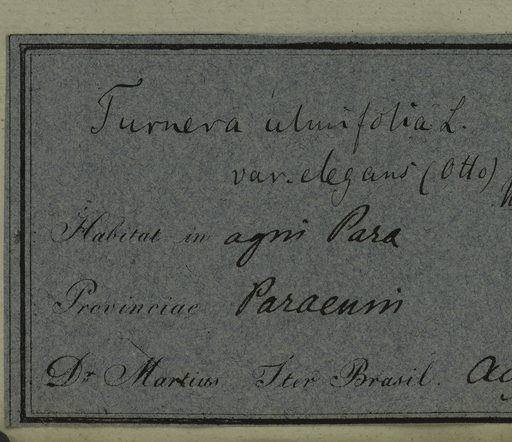 Turnera ulmifolia L.
var. elegans (Otto)
Habitat in agni Para
Provinciae Paraenni
Dr Martius Iter Brasil.